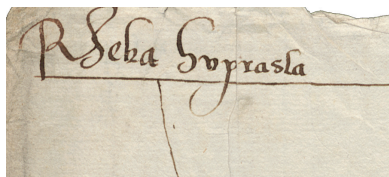 Rzeka Suprasla